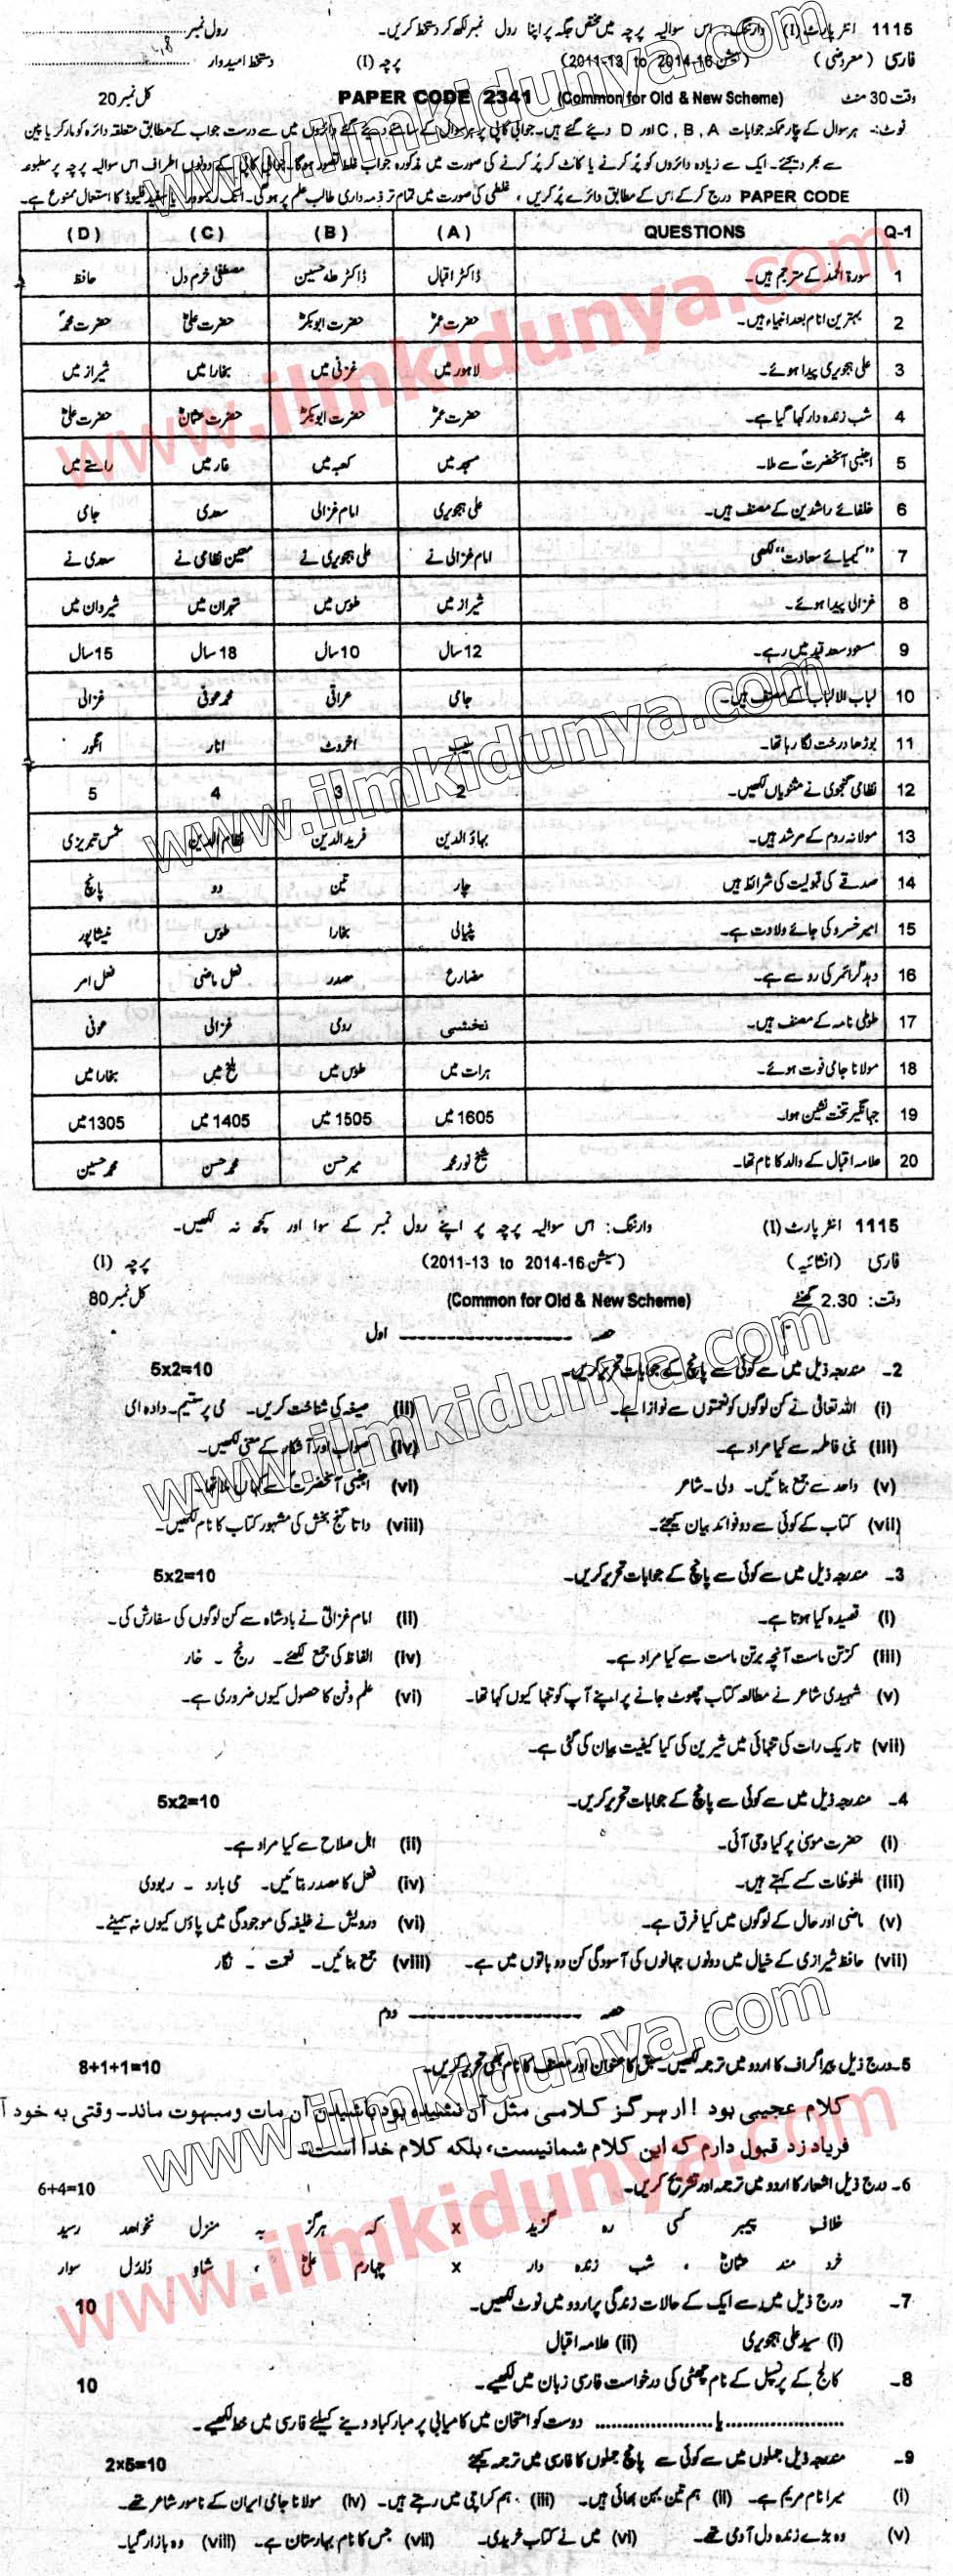 1115 انٹر پارٹ (I) وارننگ: اس سوالیہ پرچہ میں مختص جگہ پر اپنا رول نمبر لکھ کر دستخط کریں۔ رول نمبر
فارسی (معروضی) (سیشن 2011-13 to 2014-16) پرچہ (I) دستخط امیدوار
وقت 30 منٹ (Common for Old & New Scheme) PAPER CODE 2341 کل نمبر 20
نوٹ:۔ ہر سوال کے چار ممکنہ جوابات C, B, A اور D دیئے گئے ہیں۔ جوابی کاپی پر ہر سوال کے سامنے دیئے گئے دائروں میں سے درست جواب کے مطابق متعلقہ دائرہ کو مارکر یا پین
سے بھر دیجئے۔ ایک سے زیادہ دائروں کو پُر کرنے یا کاٹ کر پُر کرنے کی صورت میں مذکورہ جواب غلط تصور ہوگا۔ جوابی کاپی کے دونوں اطراف اس سوالیہ پرچہ پر مطبوعہ
PAPER CODE درج کر کے اس کے مطابق دائرے پُر کریں، غلطی کی صورت میں تمام تر ذمہ داری طالب علم پر ہوگی۔ انک ریموور یا سفید فلیوڈ کا استعمال ممنوع ہے۔
Q-1 QUESTIONS (A) (B) (C) (D)
1 سورۃ الحمد کے مترجم ہیں۔ ڈاکٹر اقبال ڈاکٹر طہٰ حسین مصطفیٰ خرم دل حافظ
2 بہترین انام بعد انبیاء ہیں۔ حضرت عمرؓ حضرت ابوبکرؓ حضرت علیؓ حضرت محمدؐ
3 علی ہجویری پیدا ہوئے۔ لاہور میں غزنی میں بخارا میں شیراز میں
4 شب زندہ دار کہا گیا ہے۔ حضرت عمرؓ حضرت ابوبکرؓ حضرت عثمانؓ حضرت علیؓ
5 اجنبی آنحضرتؐ سے ملا۔ مسجد میں کعبہ میں غار میں راستے میں
6 خلفائے راشدین کے مصنف ہیں۔ علی ہجویری امام غزالی سعدی جامی
7 "کیمیائے سعادت" لکھی امام غزالی نے علی ہجویری نے معین نظامی نے سعدی نے
8 غزالی پیدا ہوئے۔ شیراز میں طوس میں تہران میں شیروان میں
9 مسعود سعد قید میں رہے۔ 12 سال 10 سال 18 سال 15 سال
10 لباب الالباب کے مصنف ہیں۔ جامی عراقی محمد عوفی غزالی
11 بوڑھا درخت لگا رہا تھا۔ سیب اخروٹ انار انگور
12 نظامی گنجوی نے مثنویاں لکھیں۔ 2 3 4 5
13 مولانہ روم کے مرشد ہیں۔ بہاؤ الدین فرید الدین نظام الدین شمس تبریزی
14 صدقے کی قبولیت کی شرائط ہیں چار تین دو پانچ
15 امیر خسرو کی جائے ولادت ہے۔ پٹیالی بخارا طوس نیشاپور
16 دہد گرائمر کی رو سے ہے۔ مضارع مصدر فعل ماضی فعل امر
17 طوطی نامہ کے مصنف ہیں۔ نخشبی رومی غزالی عوفی
18 مولانا جامی فوت ہوئے۔ ہرات میں طوس میں بلخ میں بخارا میں
19 جہانگیر تخت نشین ہوا۔ 1605 میں 1505 میں 1405 میں 1305 میں
20 علامہ اقبال کے والد کا نام تھا۔ شیخ نور محمد میر حسن محمد حسن محمد حسین
1115 انٹر پارٹ (I) وارننگ: اس سوالیہ پرچہ پر اپنے رول نمبر کے سوا اور کچھ نہ لکھیں۔
فارسی (انشائیہ) (سیشن 2011-13 to 2014-16) پرچہ (I)
وقت: 2.30 گھنٹے (Common for Old & New Scheme) کل نمبر 80
حصہ ـــــــــــ اول
2۔ مندرجہ ذیل میں سے کوئی سے پانچ کے جوابات تحریر کریں۔ 5x2=10
(i) اللہ تعالیٰ نے کن لوگوں کو نعمتوں سے نوازا ہے۔ (ii) صیغہ کی شناخت کریں۔ می پرستیم۔ دادہ ای
(iii) بنی فاطمہ سے کیا مراد ہے۔ (iv) صواب اور آشکار کے معنی لکھیں۔
(v) واحد سے جمع بنائیں۔ ولی۔ شاعر (vi) اجنبی آنحضرتؐ سے کہاں ملا تھا۔
(vii) کتاب کے کوئی سے دو فوائد بیان کیجئے۔ (viii) داتا گنج بخش کی مشہور کتاب کا نام لکھیں۔
3۔ مندرجہ ذیل میں سے کوئی سے پانچ کے جوابات تحریر کریں۔ 5x2=10
(i) قصیدہ کیا ہوتا ہے۔ (ii) امام غزالیؒ نے بادشاہ سے کن لوگوں کی سفارش کی۔
(iii) کزتن ماست آنچہ برتن ماست سے کیا مراد ہے۔ (iv) الفاظ کی جمع لکھئے۔ رنج ۔ خار
(v) شہیدی شاعر نے مطالعہ کتاب چھوٹ جانے پر اپنے آپ کو تنہا کیوں کہا تھا۔ (vi) علم و فن کا حصول کیوں ضروری ہے۔
(vii) تاریک رات کی تنہائی میں شیرین کی کیا کیفیت بیان کی گئی ہے۔
4۔ مندرجہ ذیل میں سے کوئی سے پانچ کے جوابات تحریر کریں۔ 5x2=10
(i) حضرت موسیٰ پر کیا وحی آئی۔ (ii) اہل صلاح سے کیا مراد ہے۔
(iii) ملفوظات کسے کہتے ہیں۔ (iv) فعل کا مصدر بتائیں۔ می بارد ۔ ربودی
(v) ماضی اور حال کے لوگوں میں کیا فرق ہے۔ (vi) درویش نے خلیفہ کی موجودگی میں پاؤں کیوں نہ سمیٹے۔
(vii) حافظ شیرازی کے خیال میں دونوں جہانوں کی آسودگی کن دو باتوں میں ہے۔ (viii) جمع بنائیں۔ نعمت ۔ نگار
حصہ ـــــــــــ دوم
5۔ درج ذیل پیراگراف کا اردو میں ترجمہ لکھیں۔ سبق کا عنوان اور مصنف کا نام بھی تحریر کریں۔ 8+1+1=10
کلام عجیبی بود! ار ہرگز کلامی مثل آن نشنیدہ بود باشیدن آن مات ومبہوت ماند۔ وقتی بہ خود آ
فریاد زد قبول دارم کہ این کلام شمانیست، بلکہ کلام خدا است۔
6۔ درج ذیل اشعار کا اردو میں ترجمہ اور تشریح کریں۔ 6+4=10
خلافِ پیمبر کسی رہ گزید x کہ ہرگز بہ منزل نخواہد رسید
خرد مند عثمانؓ، شب زندہ دار x چہارم علیؓ، شاہِ دُلدُل سوار
7۔ درج ذیل میں سے ایک کے حالات زندگی پر اردو میں نوٹ لکھیں۔ 10
(i) سید علی ہجویری (ii) علامہ اقبال
8۔ کالج کے پرنسپل کے نام چھٹی کی درخواست فارسی زبان میں لکھیے۔ 10
یا دوست کو امتحان میں کامیابی پر مبارکباد دینے کیلئے فارسی میں خط لکھیے۔
9۔ مندرجہ ذیل جملوں میں سے کوئی سے پانچ جملوں کا فارسی میں ترجمہ کیجئے 2x5=10
(i) میرا نام مریم ہے۔ (ii) ہم تین بہن بھائی ہیں۔ (iii) ہم کراچی میں رہتے ہیں۔ (iv) مولانا جامی ایران کے نامور شاعر تھے۔
(v) وہ بڑے زندہ دل آدمی تھے۔ (vi) میں نے کتاب خریدی۔ (vii) جس کا نام بہارستان ہے۔ (viii) وہ بازار گیا۔
www.ilmkidunya.com
www.ilmkidunya.com
www.ilmkidunya.com
www.ilmkidunya.com
www.ilmkidunya.com
www.ilmkidunya.com